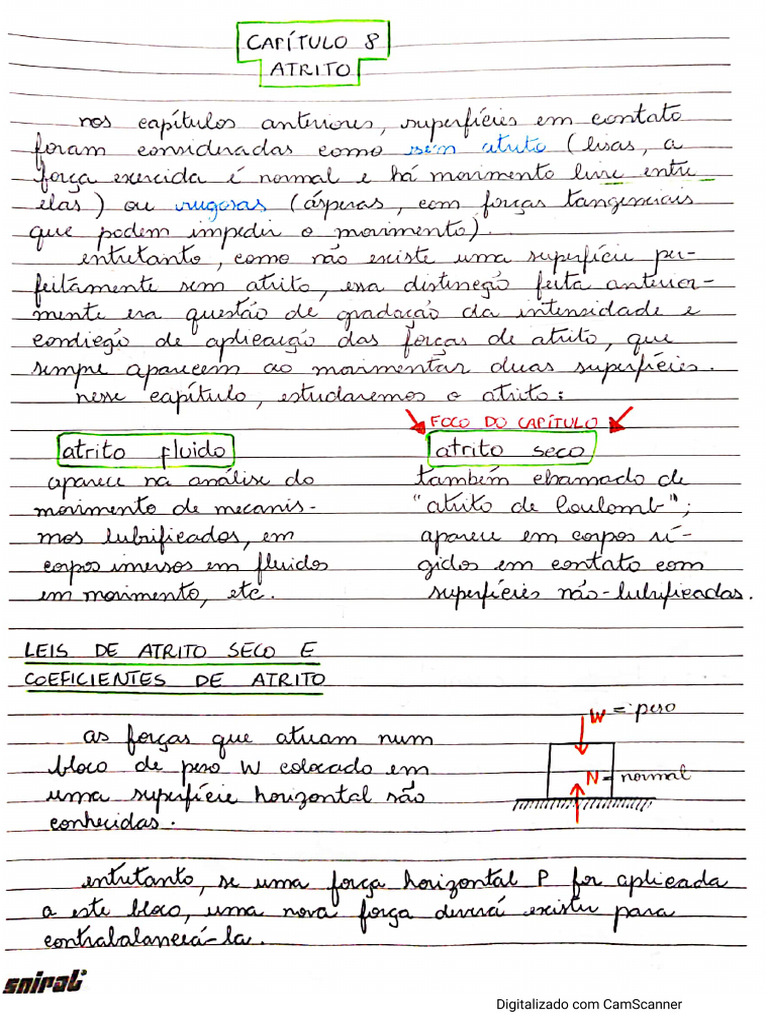 CAPÍTULO 8
ATRITO
nos capítulos anteriores, superfícies em contato
foram consideradas como sem atrito (lisas, a
força exercida é normal e há movimento livre entre
elas) ou rugosas (ásperas, com forças tangenciais
que podem impedir o movimento).
entretanto, como não existe uma superfície per-
feitamente sem atrito, essa distinção feita anterior-
mente era questão de gradação da intensidade e
condição de aplicação das forças de atrito, que
sempre aparecem ao movimentar duas superfícies.
nesse capítulo, estudaremos o atrito:
FOCO DO CAPÍTULO
atrito fluido
aparece na análise do
movimento de mecanis-
mos lubrificados, em
corpos imersos em fluidos
em movimento, etc.
atrito seco
também chamado de
"atrito de Coulomb";
aparece em corpos rí-
gidos em contato com
superfícies não-lubrificadas.
LEIS DE ATRITO SECO E
COEFICIENTES DE ATRITO
as forças que atuam num
bloco de peso W colocado em
uma superfície horizontal são
conhecidas.
W = peso
N = normal
entretanto, se uma força horizontal P for aplicada
a este bloco, uma nova força deverá existir para
contrabalanceá-la.
spiral
Digitalizado com CamScanner